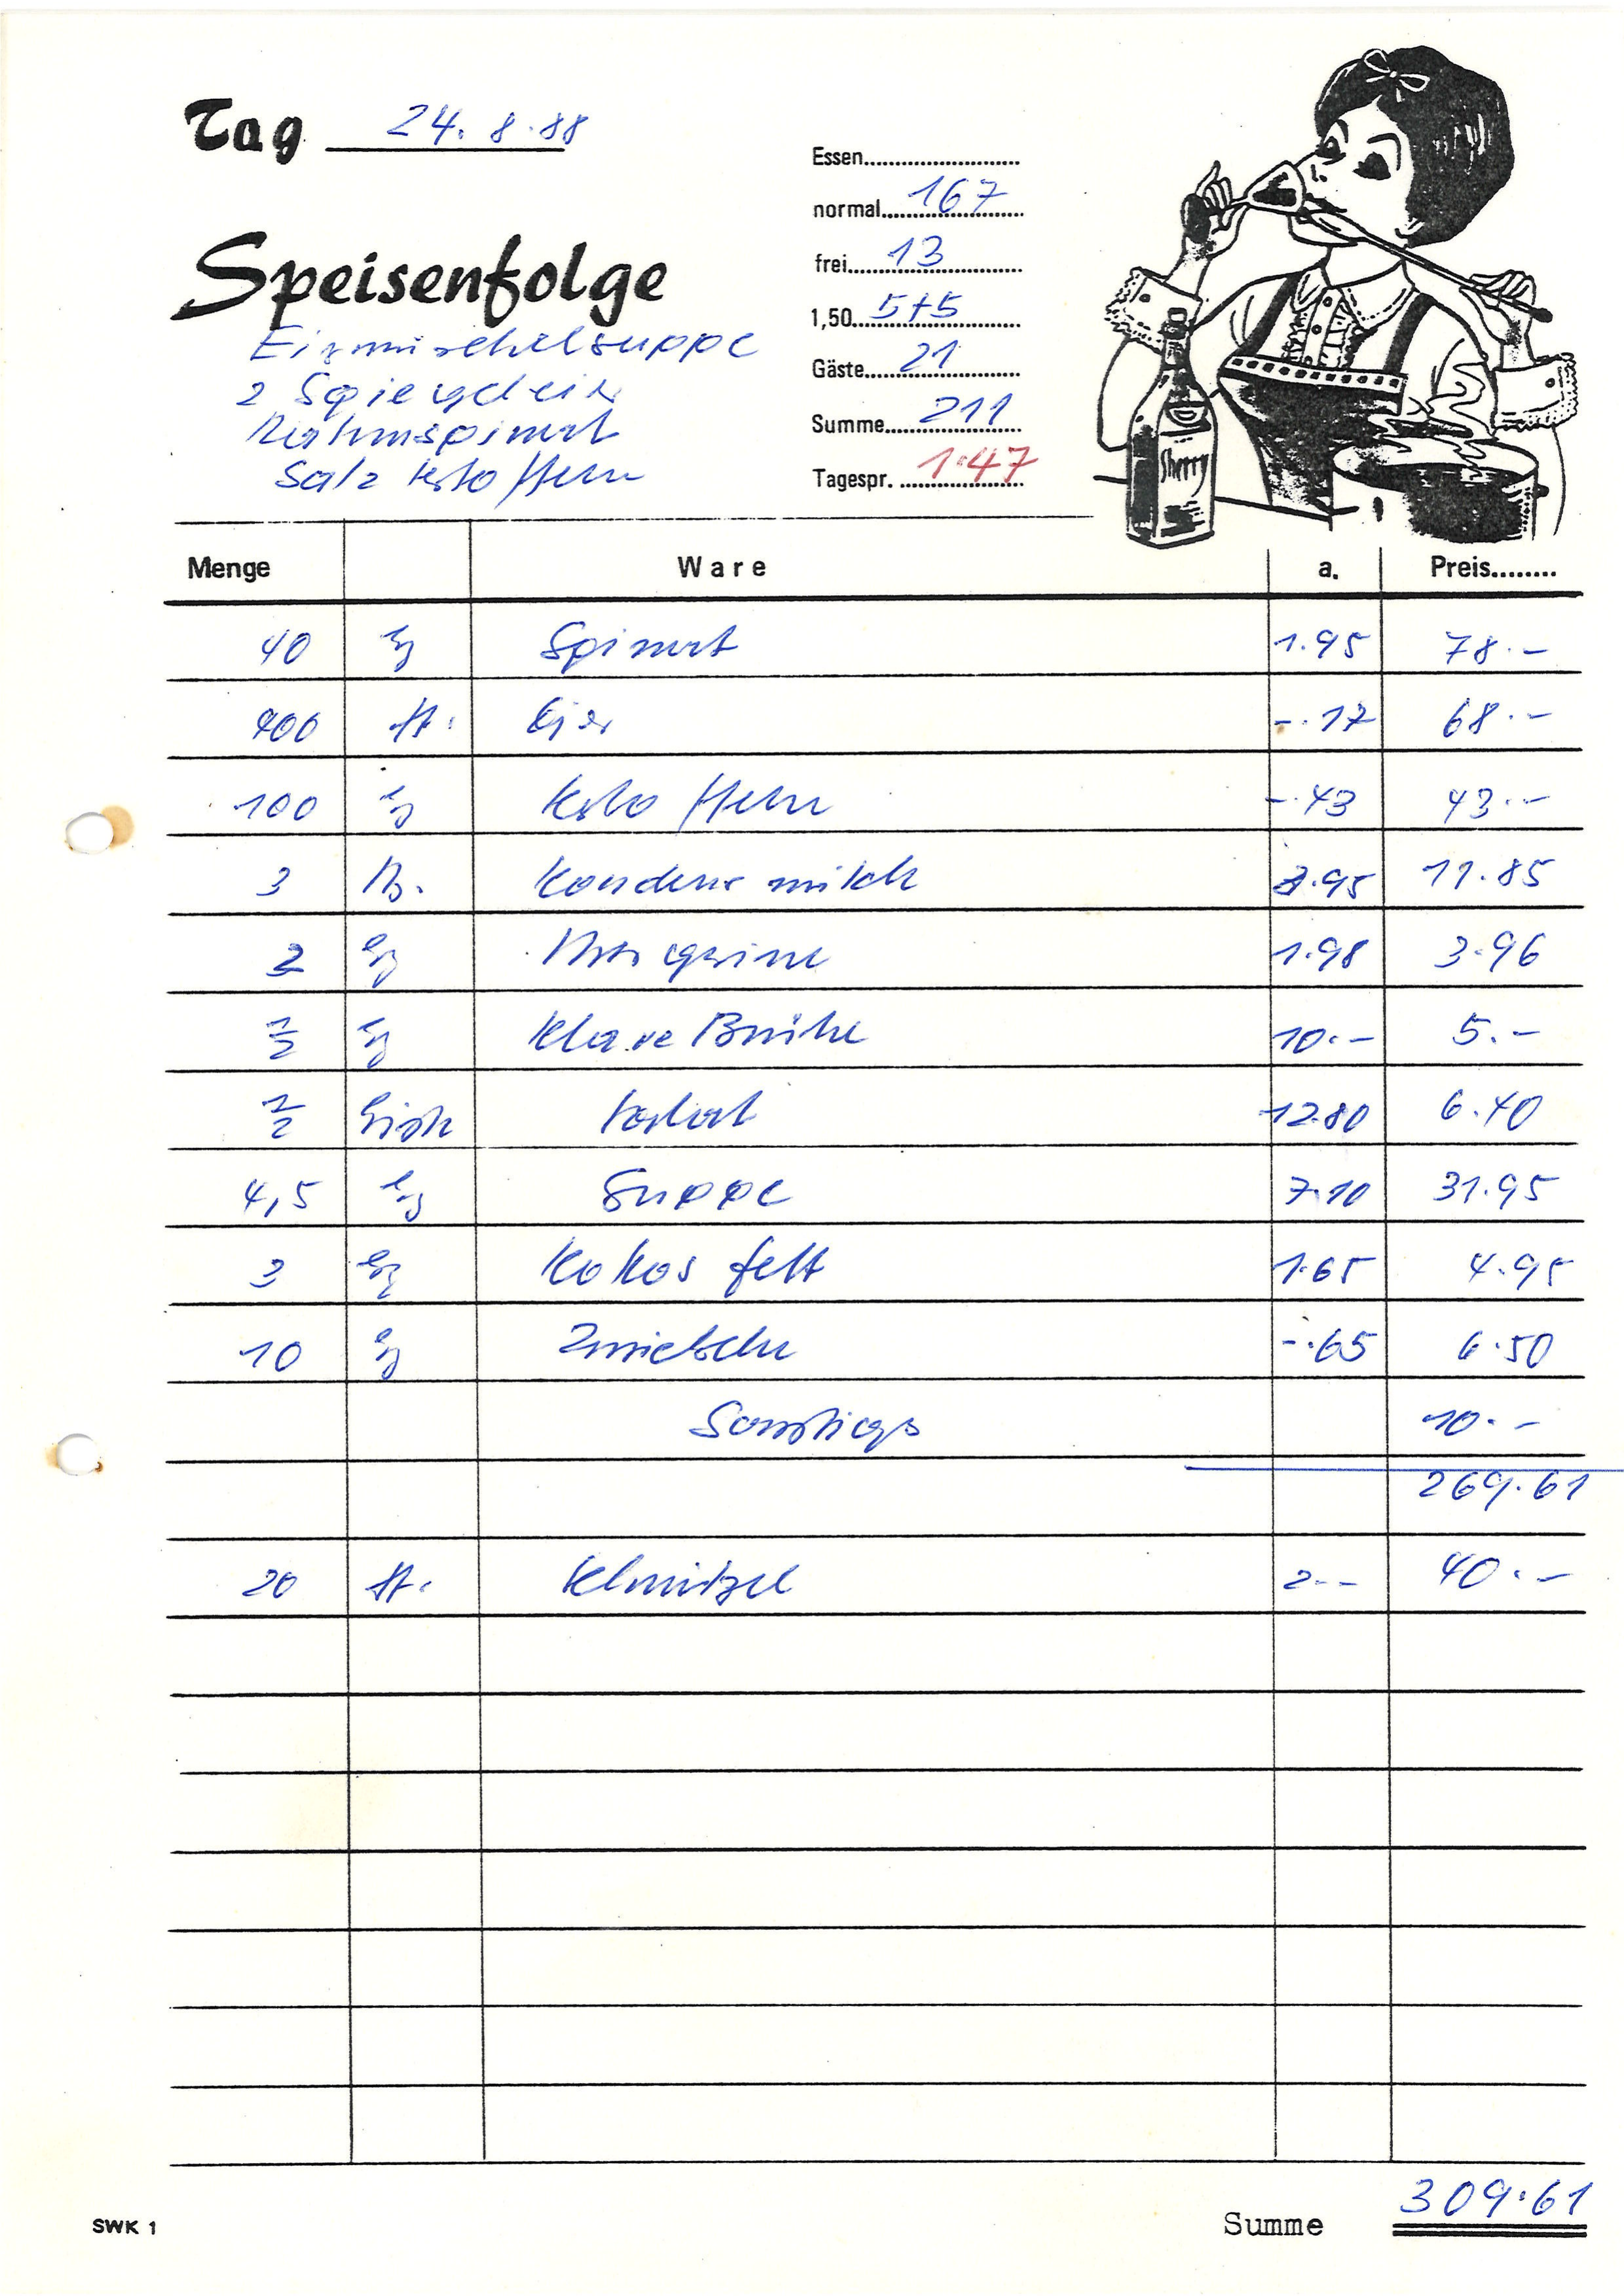 Tag 24. 8. 88
Essen
normal 167
frei 13
1,50 5+5
Gäste 21
Summe 211
Tagespr. 1.47
Speisenfolge
2 Spiegeleier
Rahmspinat
Salzkartoffeln
Sherry
Menge Ware a. Preis
40 kg Spinat 1.95 78.-
400 St. Eier -.17 68.-
100 kg Kartoffeln -.43 43.-
3 Kondensmilch 3.95 11.85
2 kg Margarine 1.98 3.96
1/2 kg Klare Brühe 10.- 5.-
1/2 12.80 6.40
4,5 kg Suppe 7.10 31.95
3 kg Kokosfett 1.65 4.95
10 kg Zwiebeln -.65 6.50
Sonstiges 10.-
269.61
20 St. 2.- 40.-
SWK 1
Summe 309.61